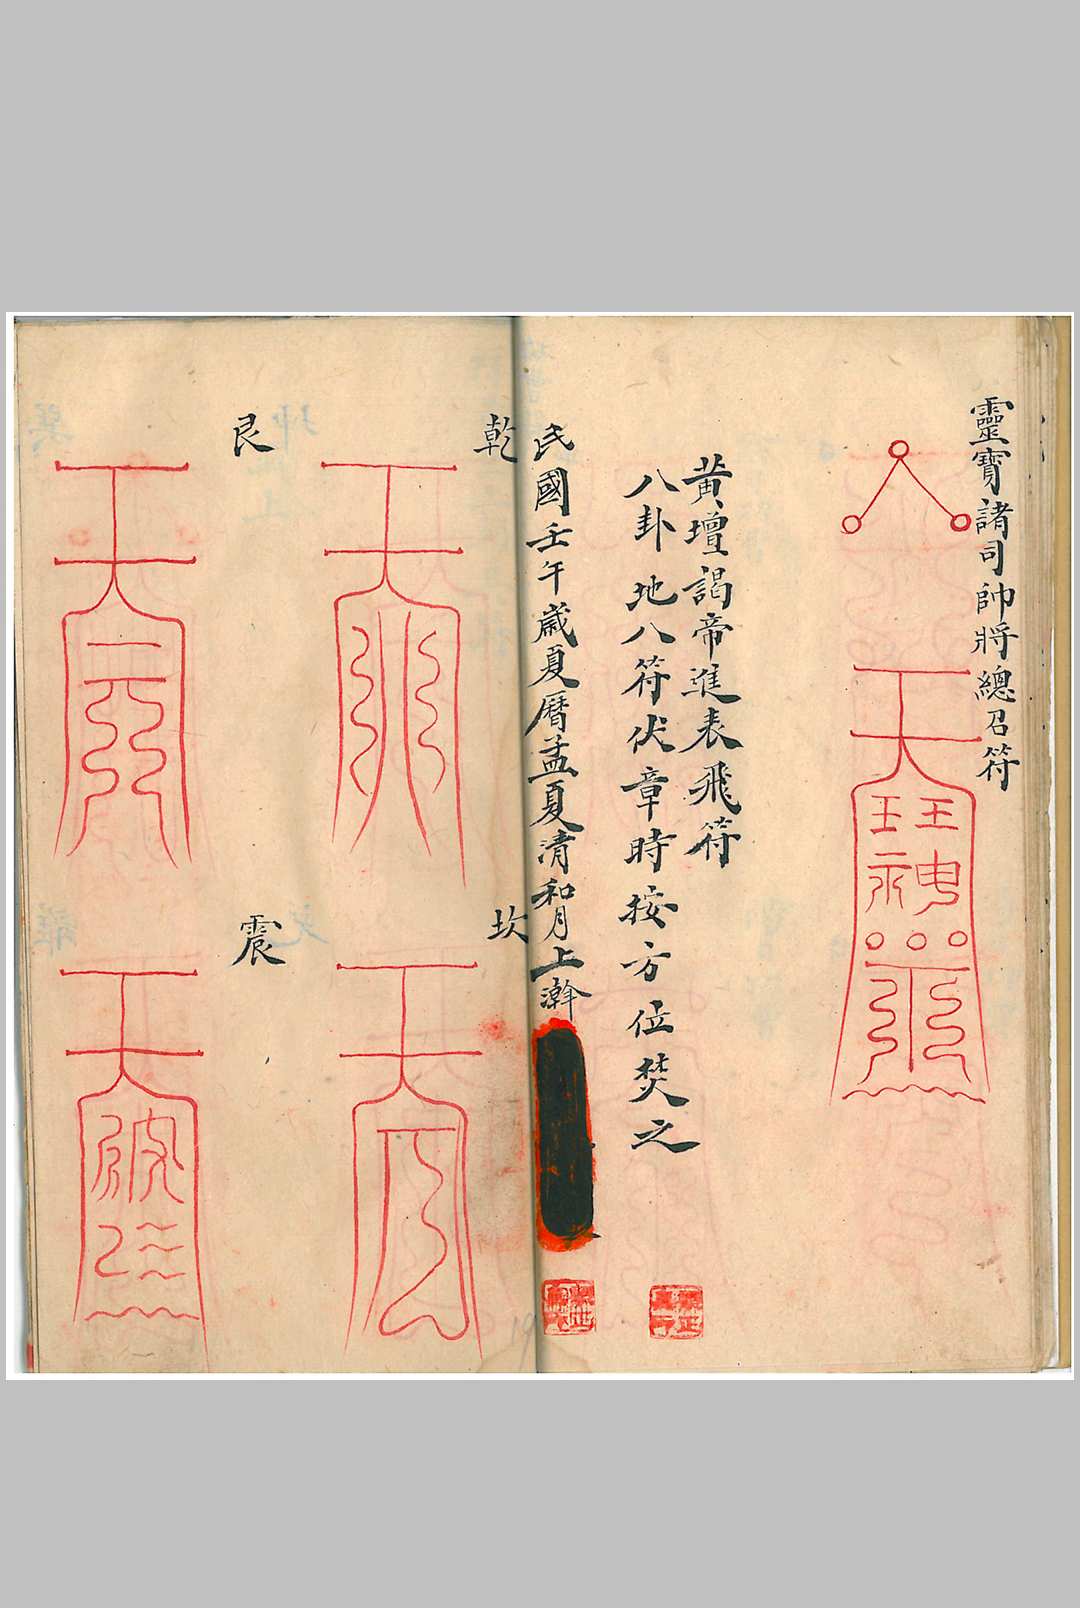 靈寶諸司帥將總召符
黃壇謁帝進表飛符
八卦地八符伏章時按方位焚之
民國壬午歲夏曆孟夏清和月上澣
乾
坎
艮
震